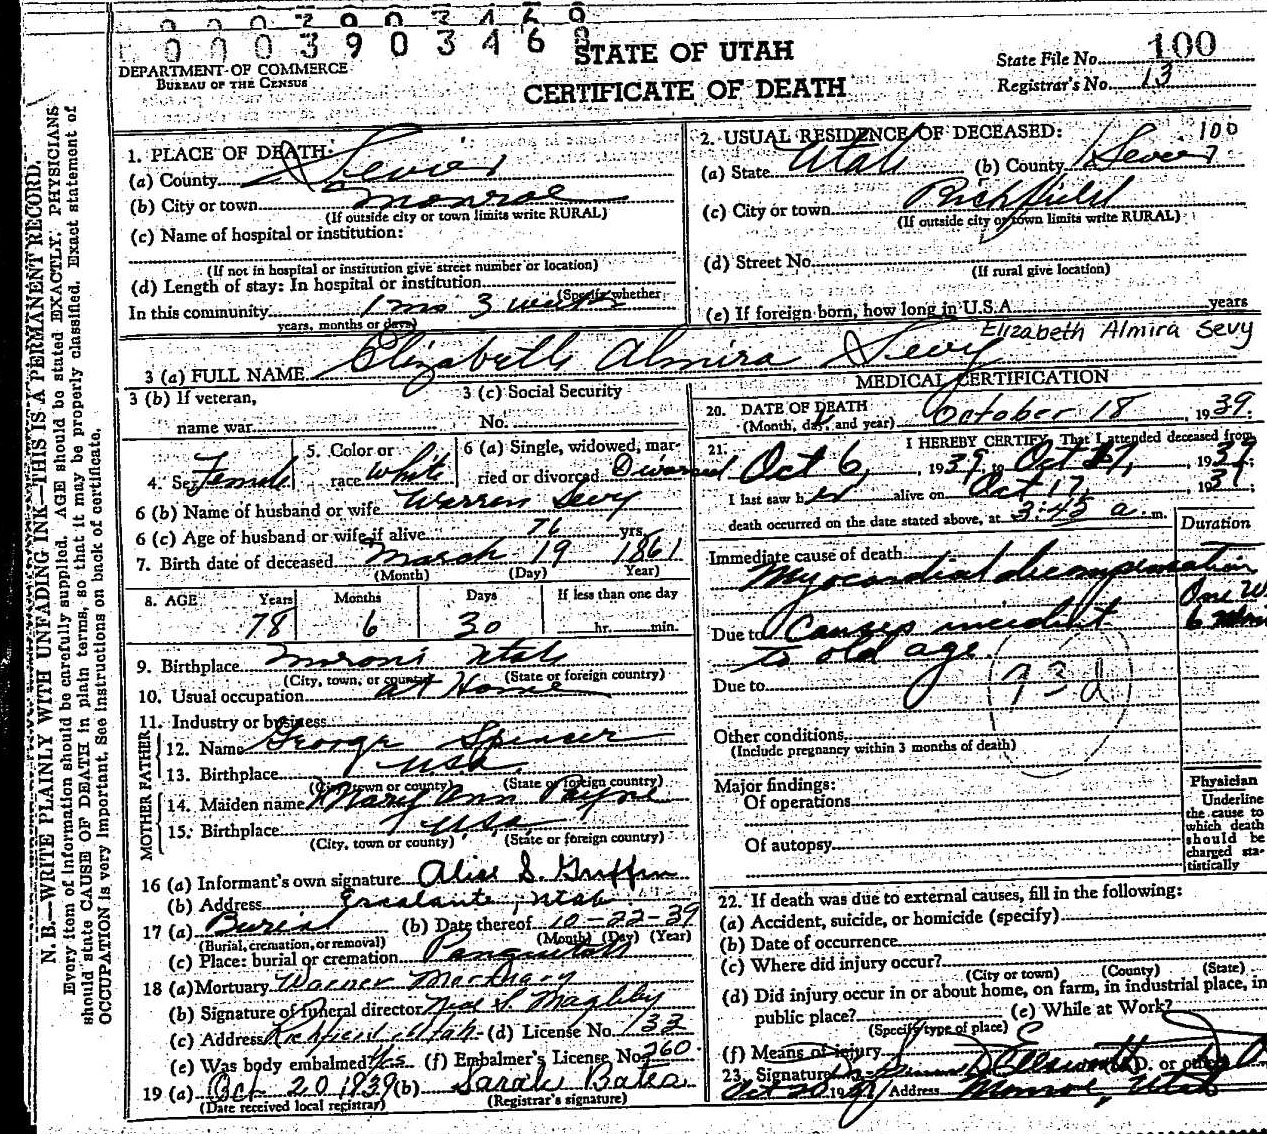 0003903468
STATE OF UTAH
CERTIFICATE OF DEATH
DEPARTMENT OF COMMERCE
BUREAU OF THE CENSUS
State File No. 100
Registrar's No. 13
N. B.—WRITE PLAINLY WITH UNFADING INK—THIS IS A PERMANENT RECORD.
Every item of information should be carefully supplied. AGE should be stated EXACTLY. PHYSICIANS
should state CAUSE OF DEATH in plain terms, so that it may be properly classified. Exact statement of
OCCUPATION is very important. See instructions on back of certificate.
1. PLACE OF DEATH:
(a) County Sevier
(b) City or town Monroe
(If outside city or town limits write RURAL)
(c) Name of hospital or institution:
(If not in hospital or institution give street number or location)
(d) Length of stay: In hospital or institution
(Specify whether
In this community 1 mo 3 weeks
years, months or days)
2. USUAL RESIDENCE OF DECEASED: 100
(a) State Utah (b) County Sevier
(c) City or town Richfield
(If outside city or town limits write RURAL)
(d) Street No.
(If rural give location)
(e) If foreign born, how long in U.S.A. years
3 (a) FULL NAME Elizabeth Almira Sevy
Elizabeth Almira Sevy
3 (b) If veteran,
name war
3 (c) Social Security
No.
4. Sex Female
5. Color or
race White
6 (a) Single, widowed, mar-
ried or divorced Divorced
6 (b) Name of husband or wife Warren Sevy
6 (c) Age of husband or wife if alive 76 yrs.
7. Birth date of deceased March 19 1861
(Month) (Day) Year)
8. AGE Years Months Days If less than one day
78 6 30 hr. min.
9. Birthplace Moroni Utah
(City, town, or county) (State or foreign country)
10. Usual occupation at Home
11. Industry or business
FATHER
12. Name George Spencer
13. Birthplace USA
(City, town or county) (State or foreign country)
MOTHER
14. Maiden name Mary Ann Payne
15. Birthplace USA
(City, town or county) (State or foreign country)
16 (a) Informant's own signature Alise S. Griffin
(b) Address Escalante, Utah
17 (a) Burial (b) Date thereof 10-22-39
(Burial, cremation, or removal) (Month) (Day) (Year)
(c) Place: burial or cremation Panguitch
18 (a) Mortuary Warner Mortuary
(b) Signature of funeral director S. Magleby
(c) Address Richfield Utah (d) License No. 132
(e) Was body embalmed? Yes (f) Embalmer's License No. 260
19 (a) Oct 20 1939 (b) Sarah Bates
(Date received local registrar) (Registrar's signature)
MEDICAL CERTIFICATION
20. DATE OF DEATH October 18, 1939.
(Month, day, and year)
21. I HEREBY CERTIFY, That I attended deceased from
Oct 6, 1939, to Oct 17, 1939;
I last saw her alive on Oct 17, 1939;
death occurred on the date stated above, at 3:45 a. m.
Duration
Immediate cause of death
Myocardial decompensation
One
Due to Causes incident 6
to old age
Due to
93d
Other conditions
(Include pregnancy within 3 months of death)
Major findings:
Of operations
Of autopsy
Physician
Underline
the cause to
which death
should be
charged sta-
tistically
22. If death was due to external causes, fill in the following:
(a) Accident, suicide, or homicide (specify)
(b) Date of occurrence
(c) Where did injury occur?
(City or town) (County) (State)
(d) Did injury occur in or about home, on farm, in industrial place, in
public place? (e) While at Work?
(Specify type of place)
(f) Means of injury
23. Signature Ellsworth (M.D. or other)
Oct 20 19 Address Monroe, Utah